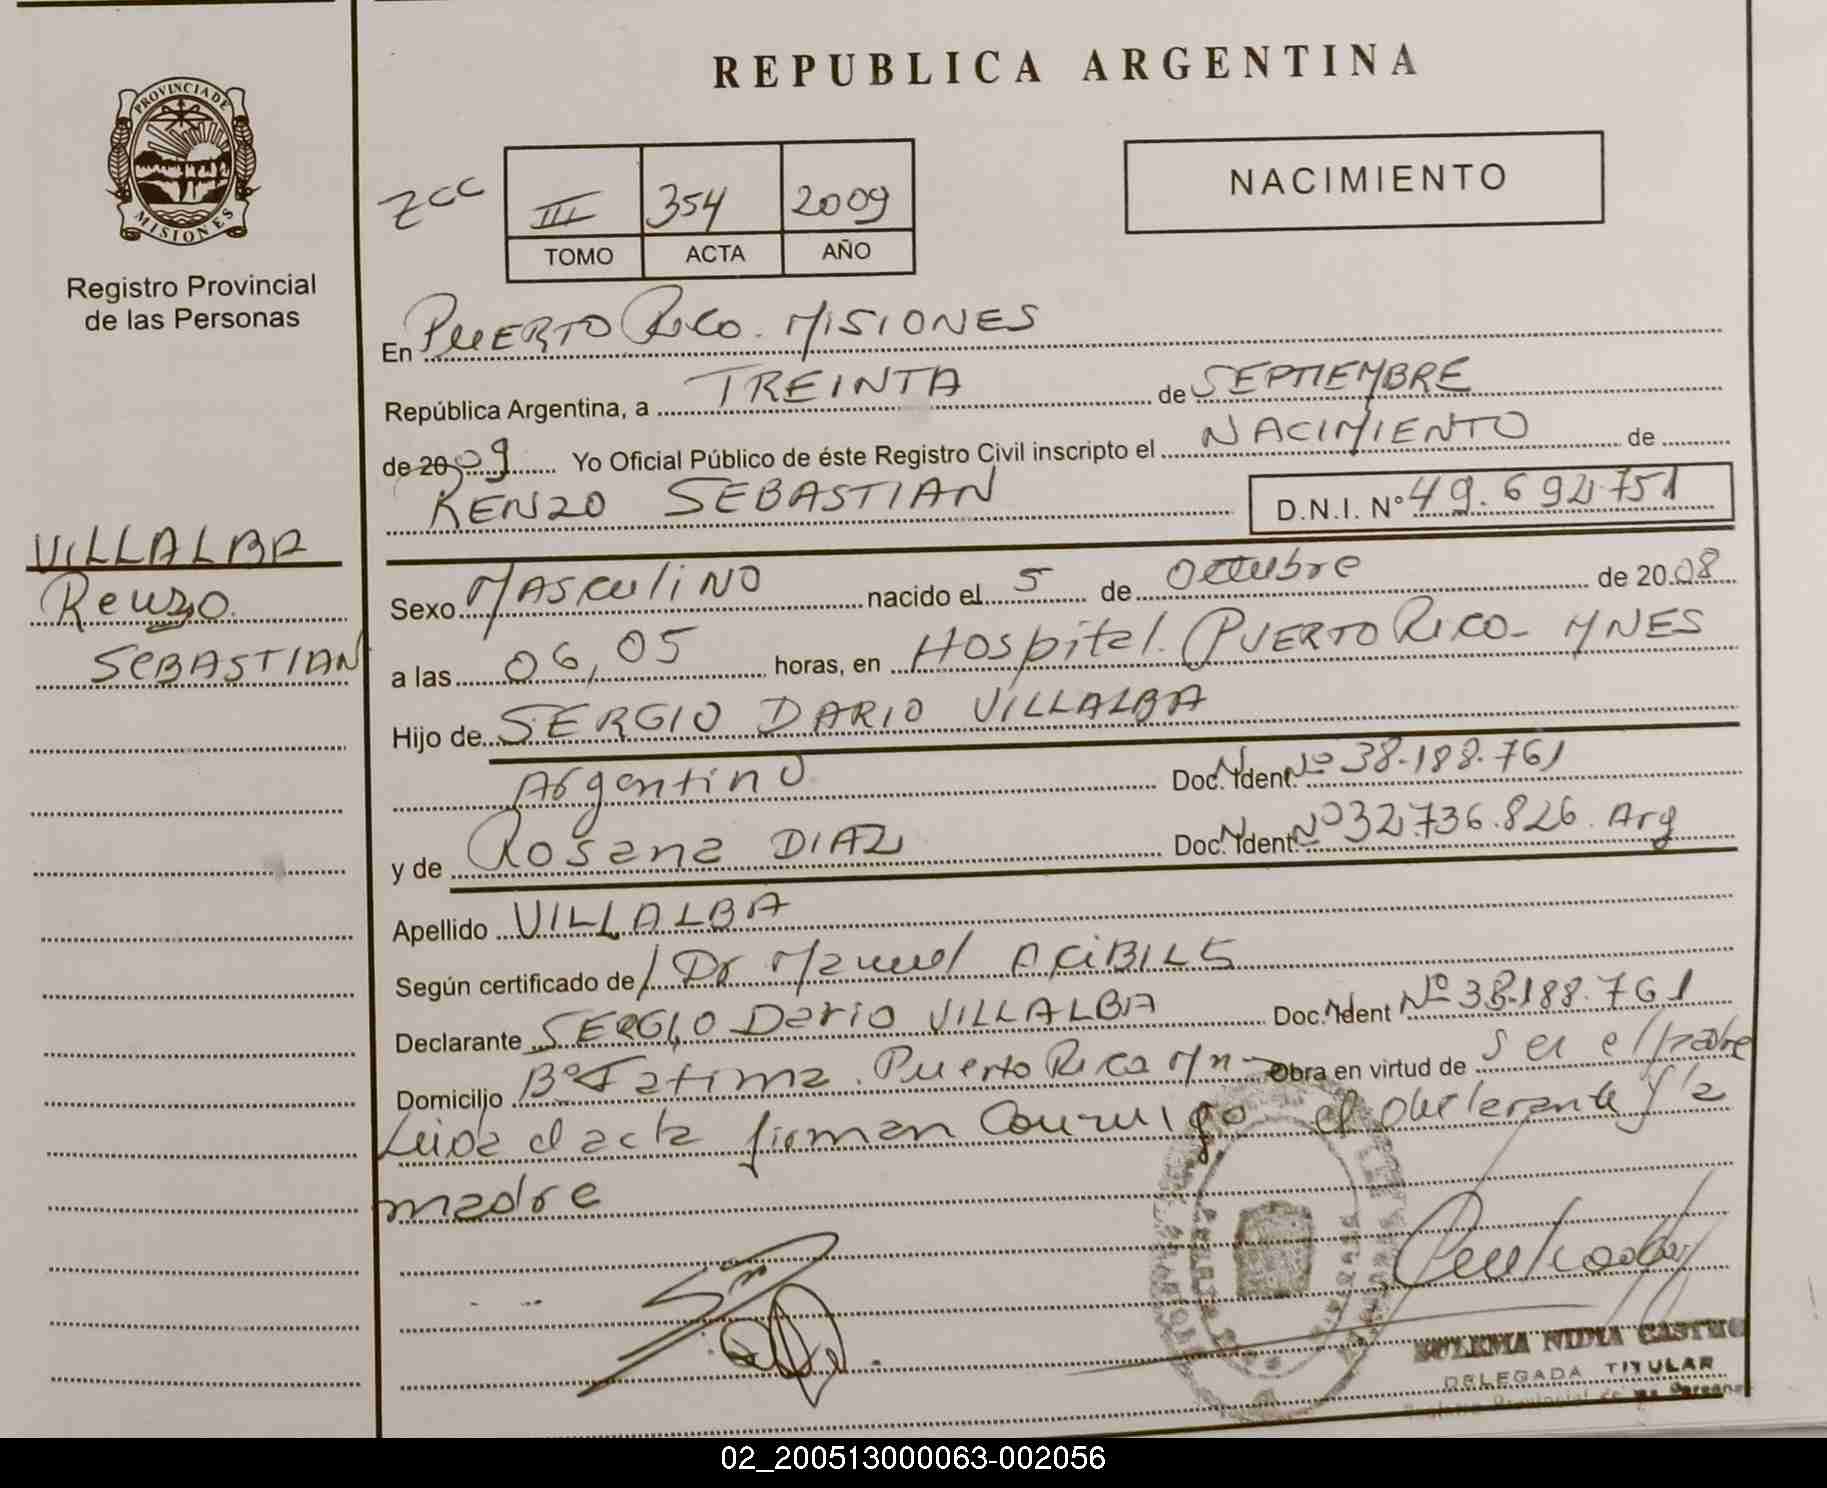 REPUBLICA ARGENTINA
PROVINCIA DE
MISIONES
Registro Provincial
de las Personas
ZCC
III 354 2009
TOMO ACTA AÑO
NACIMIENTO
En PUERTO RICO. MISIONES
República Argentina, a TREINTA de SEPTIEMBRE
de 2009 Yo Oficial Público de éste Registro Civil inscripto el NACIMIENTO de
RENZO SEBASTIAN D.N.I. Nº 49.692.751
VILLALBA
Renzo
SEBASTIAN
Sexo MASCULINO nacido el 5 de Octubre de 2008
a las 06,05 horas, en Hospital. PUERTO RICO- MNES
Hijo de SERGIO DARIO VILLALBA
Argentino Doc. Ident. Nº 38.188.761
y de Rosana DIAZ Doc. Ident. Nº 32.736.826. Arg
Apellido VILLALBA
Según certificado de Dr Manuel
Declarante SERGIO Dario VILLALBA Doc. Ident Nº 38.188.761
Domicilio Bº Fatima. Puerto Rico Mn Obra en virtud de ser el padre
Leida el acta firman conmigo el declarante y la
madre
ZULEMA NIDIA CASTRO
DELEGADA TITULAR
Registro Provincial de las Personas
02_200513000063-002056